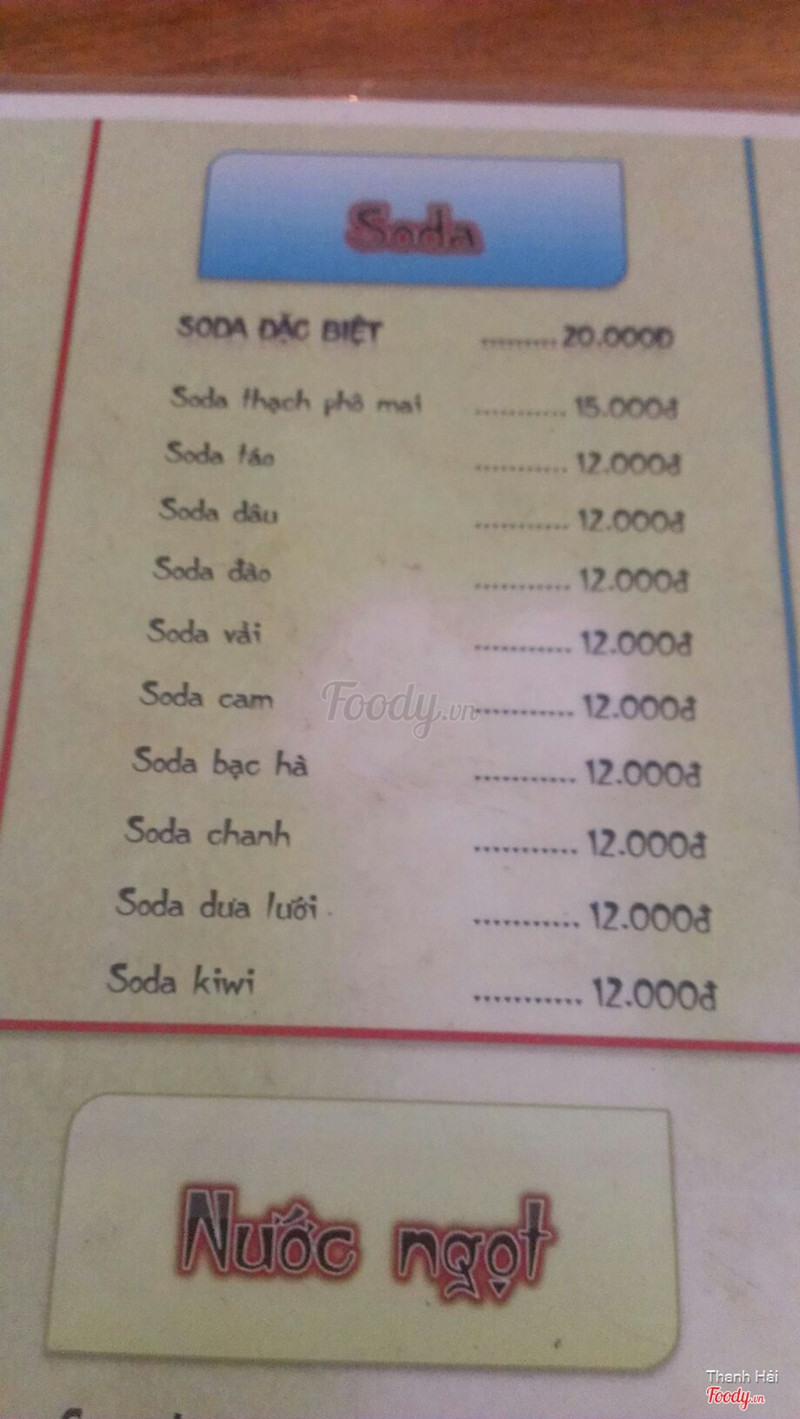 Soda
SODA ĐẶC BIỆT ......... 20.000Đ
Soda thạch phô mai ........... 15.000đ
Soda táo ........... 12.000đ
Soda dâu ........... 12.000đ
Soda đào ........... 12.000đ
Soda vải ........... 12.000đ
Soda cam ........... 12.000đ
Foody.vn
Soda bạc hà ........... 12.000đ
Soda chanh ........... 12.000đ
Soda dưa lưới ........... 12.000đ
Soda kiwi ........... 12.000đ
Nước ngọt
Thanh Hải
Foody.vn